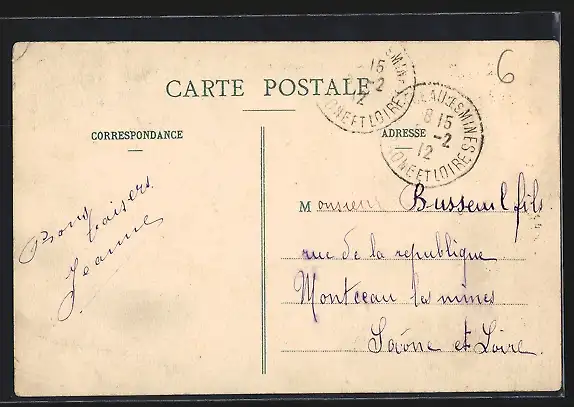 6
CARTE POSTALE
CORRESPONDANCE
ADRESSE
15
-2
12
ONE ET LOIRE
EAU-LES-MINES
8 15
-2
12
SAONE ET LOIRE
Bons baisers
Jeanne
Monsieur Busseuil fils
rue de la republique
Montceau les mines
Saône et Loire.